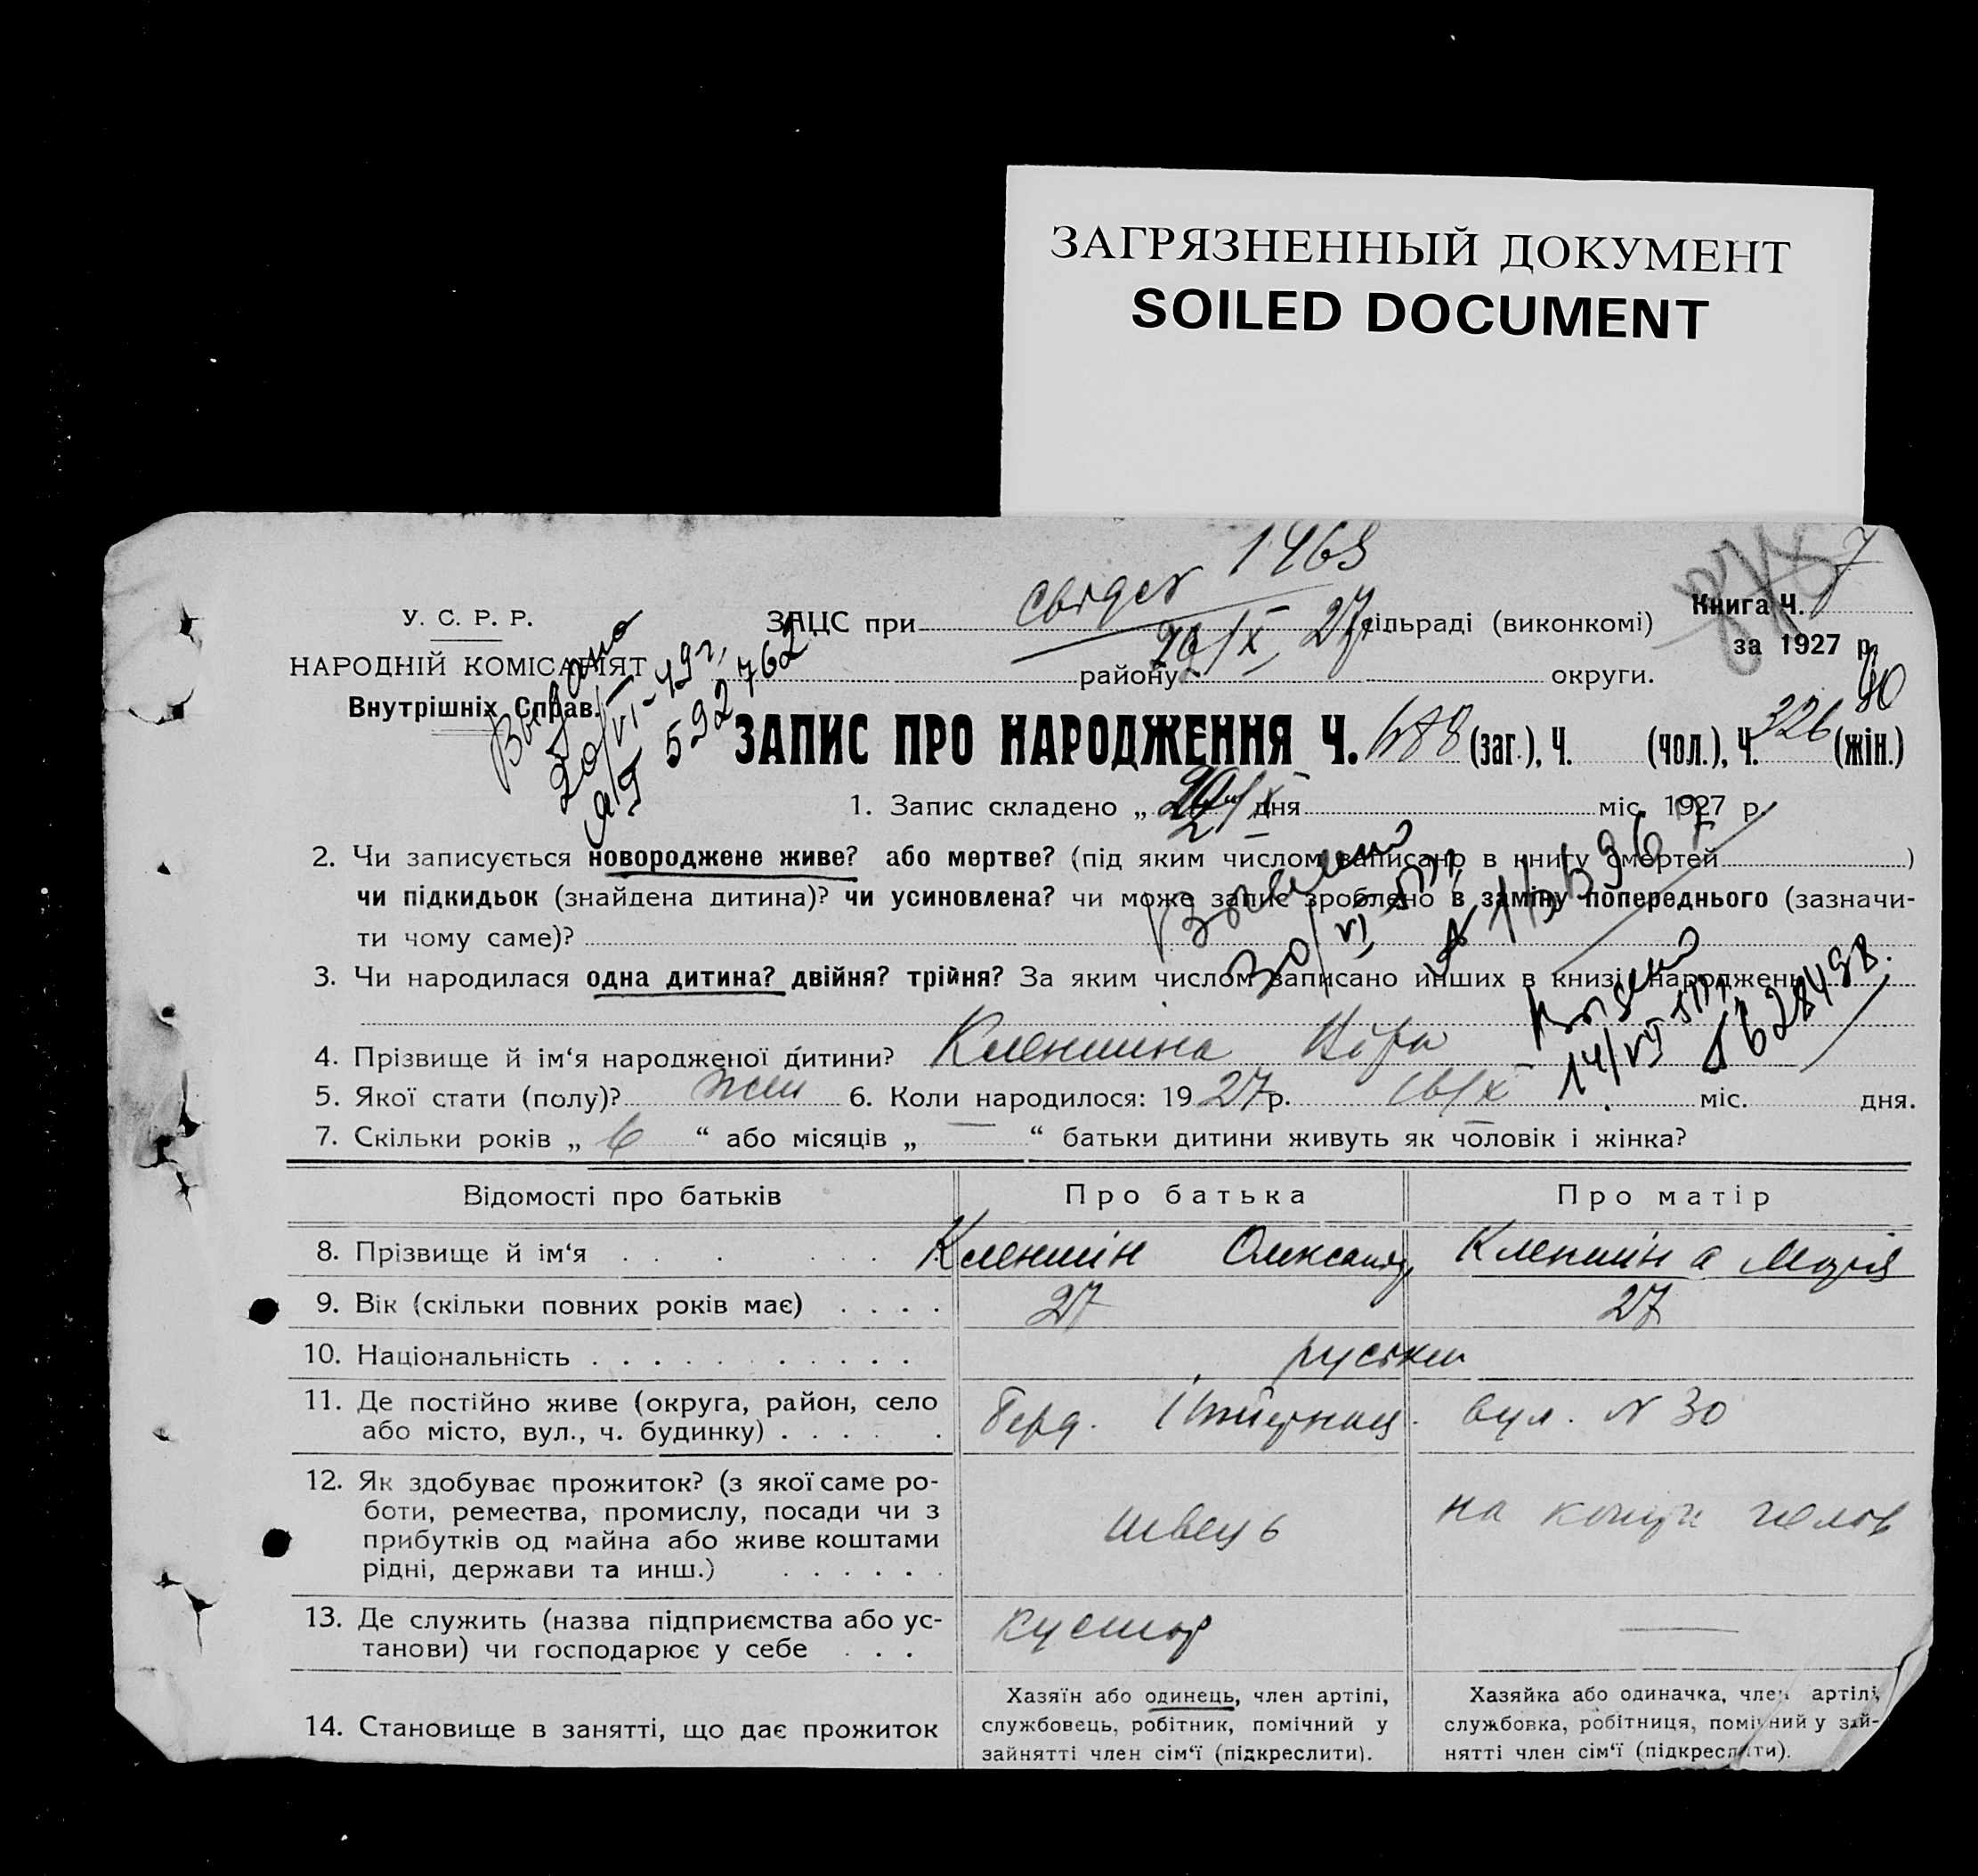 ЗАГРЯЗНЕННЫЙ ДОКУМЕНТ
SOILED DOCUMENT
У. С. Р. Р.
НАРОДНІЙ КОМІСАРІЯТ
Внутрішніх Справ.
Выдано
20/VI-49 г.
592762
1468
ЗАЦС при сільраді (виконкомі)
27
району округи.
Книга Ч. 7
за 1927 р.
ЗАПИС ПРО НАРОДЖЕННЯ Ч. 688 (заг.), Ч. (чол.), Ч. 326 (жін.)
1. Запис складено „ “ дня міс. 1927 р.
2. Чи записується новороджене живе? або мертве? (під яким числом записано в книгу смертей )
чи підкидьок (знайдена дитина)? чи усиновлена? чи може запис зроблено в заміну попереднього (зазначи-
ти чому саме)?
3. Чи народилася одна дитина? двійня? трійня? За яким числом записано инших в книзі народжень
4. Прізвище й ім‘я народженої дитини? Кленшіна Віра
5. Якої стати (полу)? жін 6. Коли народилося: 1927 р. 16/X міс. дня.
7. Скільки років „ 6 “ або місяців „ — “ батьки дитини живуть як чоловік і жінка?
Відомості про батьків Про батька Про матір
8. Прізвище й ім‘я Кленшін Олександ. Кленшіна Марія
9. Вік (скільки повних років має) 27 27
10. Національність руські
11. Де постійно живе (округа, район, село
або місто, вул., ч. будинку) Берд. вул. № 30
12. Як здобуває прожиток? (з якої саме ро-
боти, ремества, промислу, посади чи з
прибутків од майна або живе коштами
рідні, держави та инш.) швець на кошти чолов
13. Де служить (назва підприємства або ус-
танови) чи господарює у себе кустар —
14. Становище в занятті, що дає прожиток
Хазяїн або одинець, член артілі,
службовець, робітник, помічний у
зайнятті член сім‘ї (підкреслити).
Хазяйка або одиначка, член артілі,
службовка, робітниця, помічний у зай-
нятті член сім‘ї (підкреслити).